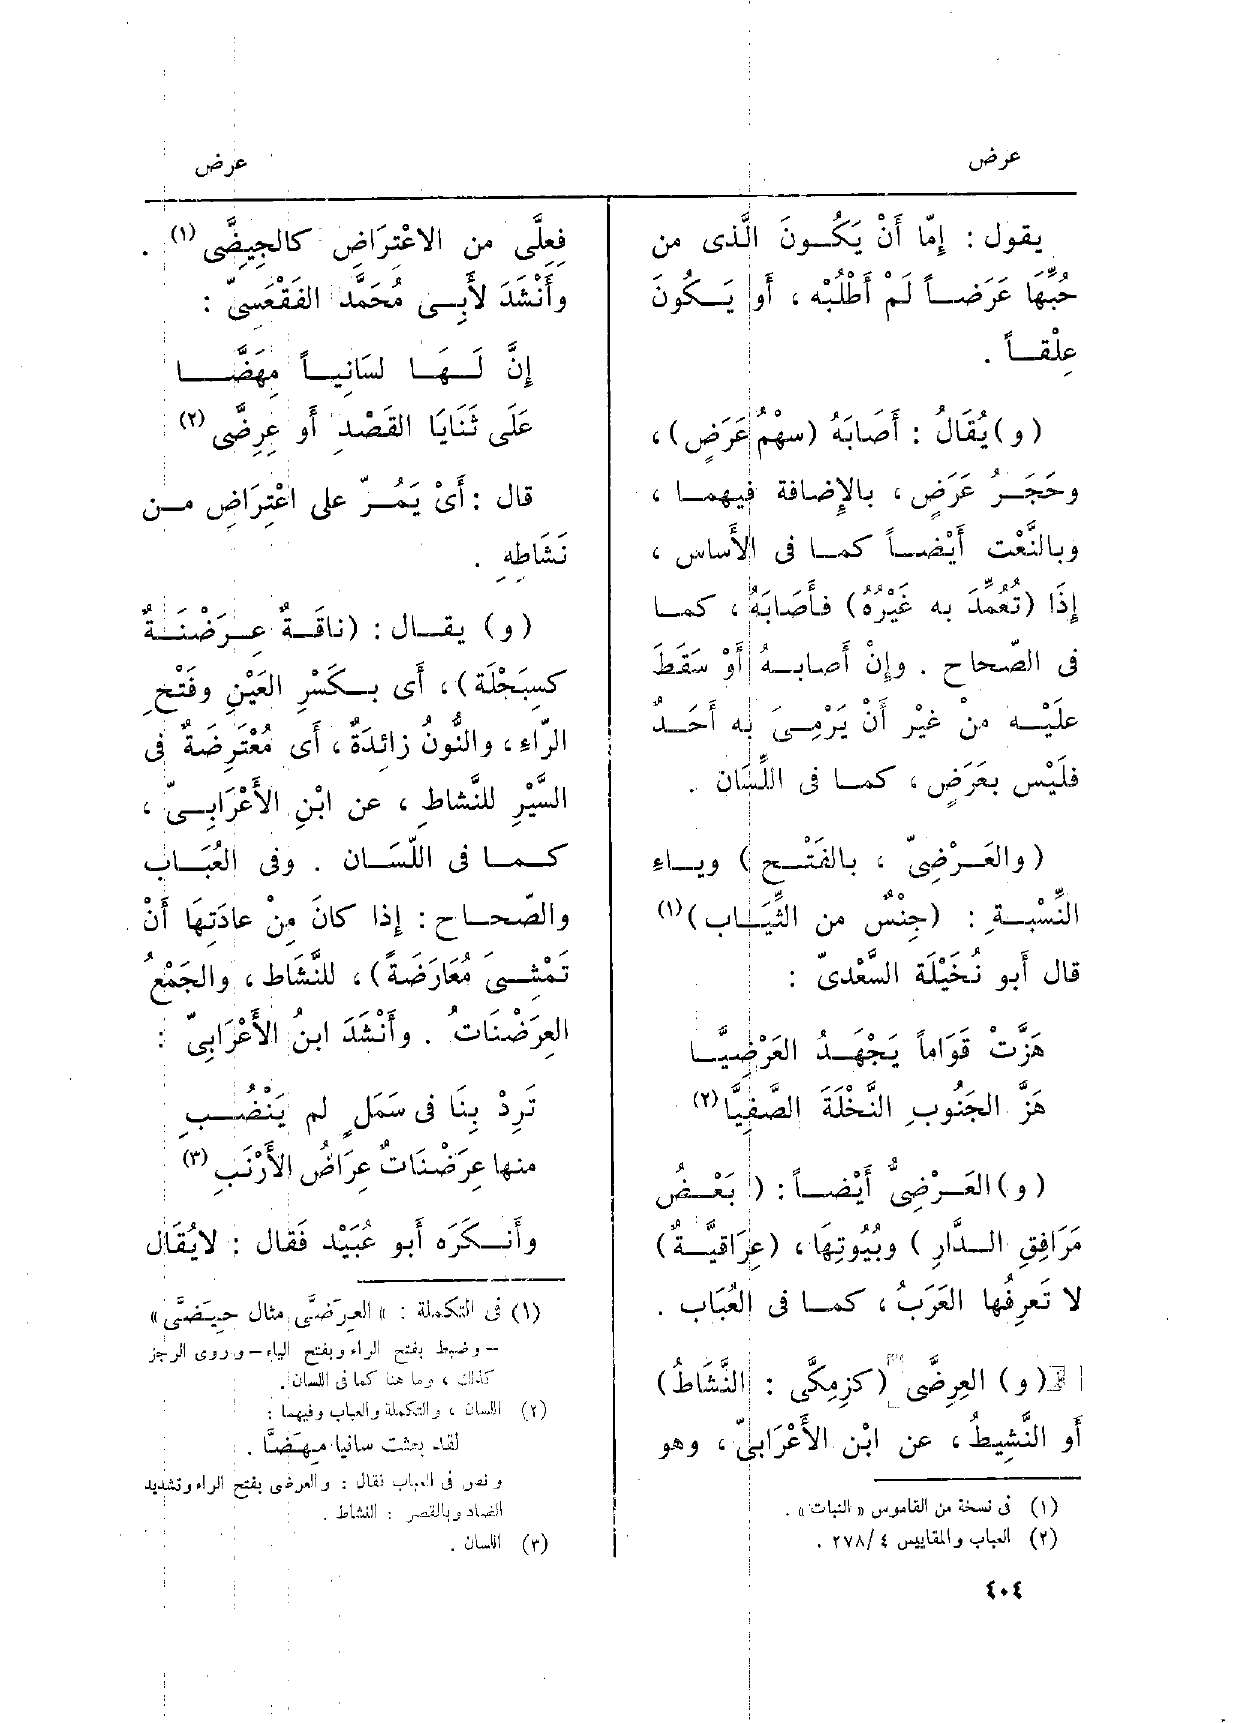 عرض
يقول : إمّا أَنْ يَكُونَ الَّذى من
حُبِّهَا عَرَضاً لَمْ أَطْلُبْه ، أَو يَكُونَ
عِلْقاً .
(و)يُقَالُ : أَصَابَهُ (سهْمُ عَرَضٍ) ،
وحَجَرُ عَرَضٍ ، بالإِضافة فيهما ،
وبالنَّعْت أَيْضاً كما فى الأَساس ،
إِذَا (تُعُمِّدَ به غَيْرُهُ) فأَصَابَهُ ، كما
فى الصّحاح . وإِنْ أَصابهُ أَوْ سَقَطَ
علَيْه منْ غيْر أَنْ يَرْمِىَ به أَحَدٌ
فلَيْس بعَرَضٍ ، كما فى اللِّسَان .
(والعَرْضِىّ ، بالفَتْح) وياء
النِّسْبة : (جِنْسٌ من الثِّيَاب)(١)
قال أَبو نُخَيْلَة السَّعْدىّ :
هَزَّتْ قَوَاماً يَجْهَدُ العَرْضِيَّا
هَزَّ الجَنُوبِ النَّخْلَةَ الصَّفِيَّا(٢)
(و)العَرْضِىُّ أَيْضاً : (بَعْضُ
مَرَافِقِ الدَّارِ ) وبُيُوتِهَا ، (عِرَاقيَّةٌ)
لا تَعرِفُها العَرَبُ ، كما فى العُبَاب .
(و) العِرِضَّى (كزِمِكَّى : النَّشَاطُ)
أَو النَّشِيطُ ، عن ابْن الأَعْرَابىّ ، وهو
(١) فى نسخة من القاموس « النبات » .
(٢) العباب والمقاييس ٤ /٢٧٨ .
٤٠٤
عرض
فِعِلَّى من الاعْتِرَاضِ كالجِيِضَّى(١) .
وأَنْشَدَ لأَبِى مُحَمَّد الفَقْعَسىّ :
إِنَّ لَهَا لسَانِياً مِهَضَّا
عَلَى ثَنَايَا القَصْدِ أَو عِرِضَّى(٢)
قال : أَىْ يَمُرّ على اعْتِرَاضِ من
نَشَاطِهِ .
(و) يقال : (ناقَةٌ عِرَضْنَةٌ
كسِبَحْلَة) ، أَى بكَسْرِ العَيْنِ وفَتْحِ
الرّاءِ ، والنُّونُ زائدَةٌ ، أَى مُعْتَرِضَةٌ فى
السَّيْرِ للنَّشاطِ ، عن ابْنِ الأَعْرَابِىّ ،
كما فى اللّسَان . وفى العُبَاب
والصّحاح : إِذا كانَ مِنْ عادَتِهَا أَنْ
تَمْشِىَ مُعَارَضَةً) ، للنَّشَاط ، والجَمْعُ
العِرَضْنَاتُ . وأَنْشَدَ ابنُ الأَعْرَابىّ :
تَرِدْ بِنَا فى سَمَلٍ لم يَنْضُبِ
منها عِرَضْنَاتٌ عِرَاضُ الأَرْنَبِ(٣)
وأَنكَرَه أَبو عُبَيْد فَقال : لايُقَال
(١) فى التكملة : « العِرَضَّى مثال جِيَضَّى »
— وضبط بفتح الراء وبفتح الياء — وروى الرجز
كذلك ، وما هنا كما فى اللسان .
(٢) اللسان ، والتكملة والعباب وفيهما :
لقد بعثت سانيا مِهَضَّا .
ونص فى العباب فقال : والعرضى بفتح الراء وتشديد
الضاد وبالقصر : النشاط .
(٣) اللسان .